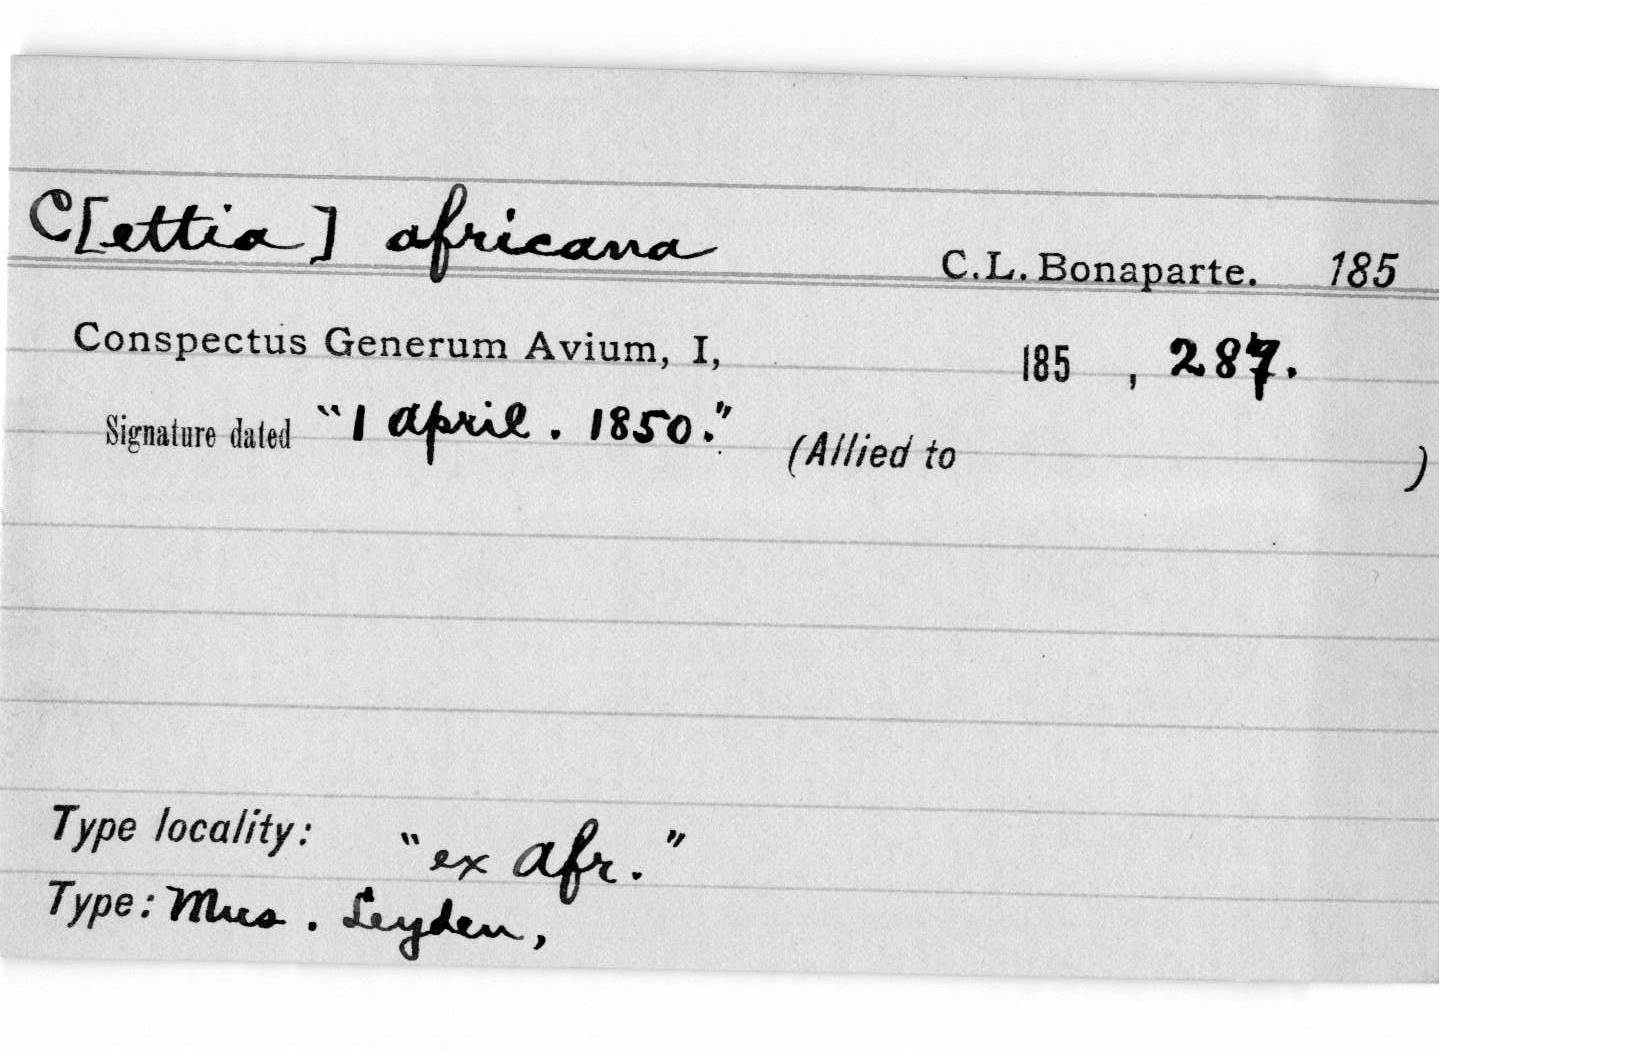 C[ettia] africana C.L. Bonaparte. 185
Conspectus Generum Avium, I, 185 , 287.
Signature dated "1 April. 1850." (Allied to )
Type locality: "ex Afr."
Type: Mus. Leyden,